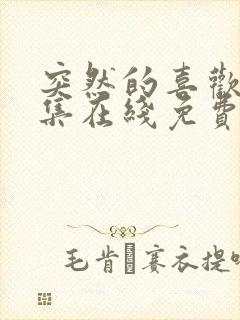 突然的喜歡
集在綫免費
毛肯賽衣提